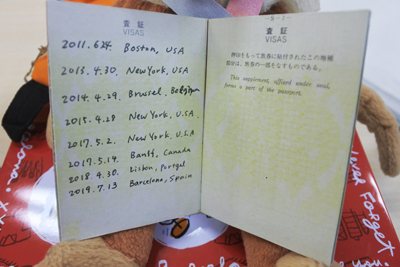 査証
VISAS
2011.6.24. Boston, USA
2013.4.30. NewYork, USA
2014.4.29. Brusel, Belgium
2015.4.28 NewYork, U.S.A.
2017.5.2. NewYork, U.S.A
2017.5.14. Banff, Canada
2018 4.30. Lisbon, Portugal
2019.7.13 Barcelona, Spain
査証
VISAS
押印をもって旅券に貼付されたこの増補
部分は、旅券の一部をなすものである。
This supplement, affixed under seal,
forms a part of the passport.
ever Forget